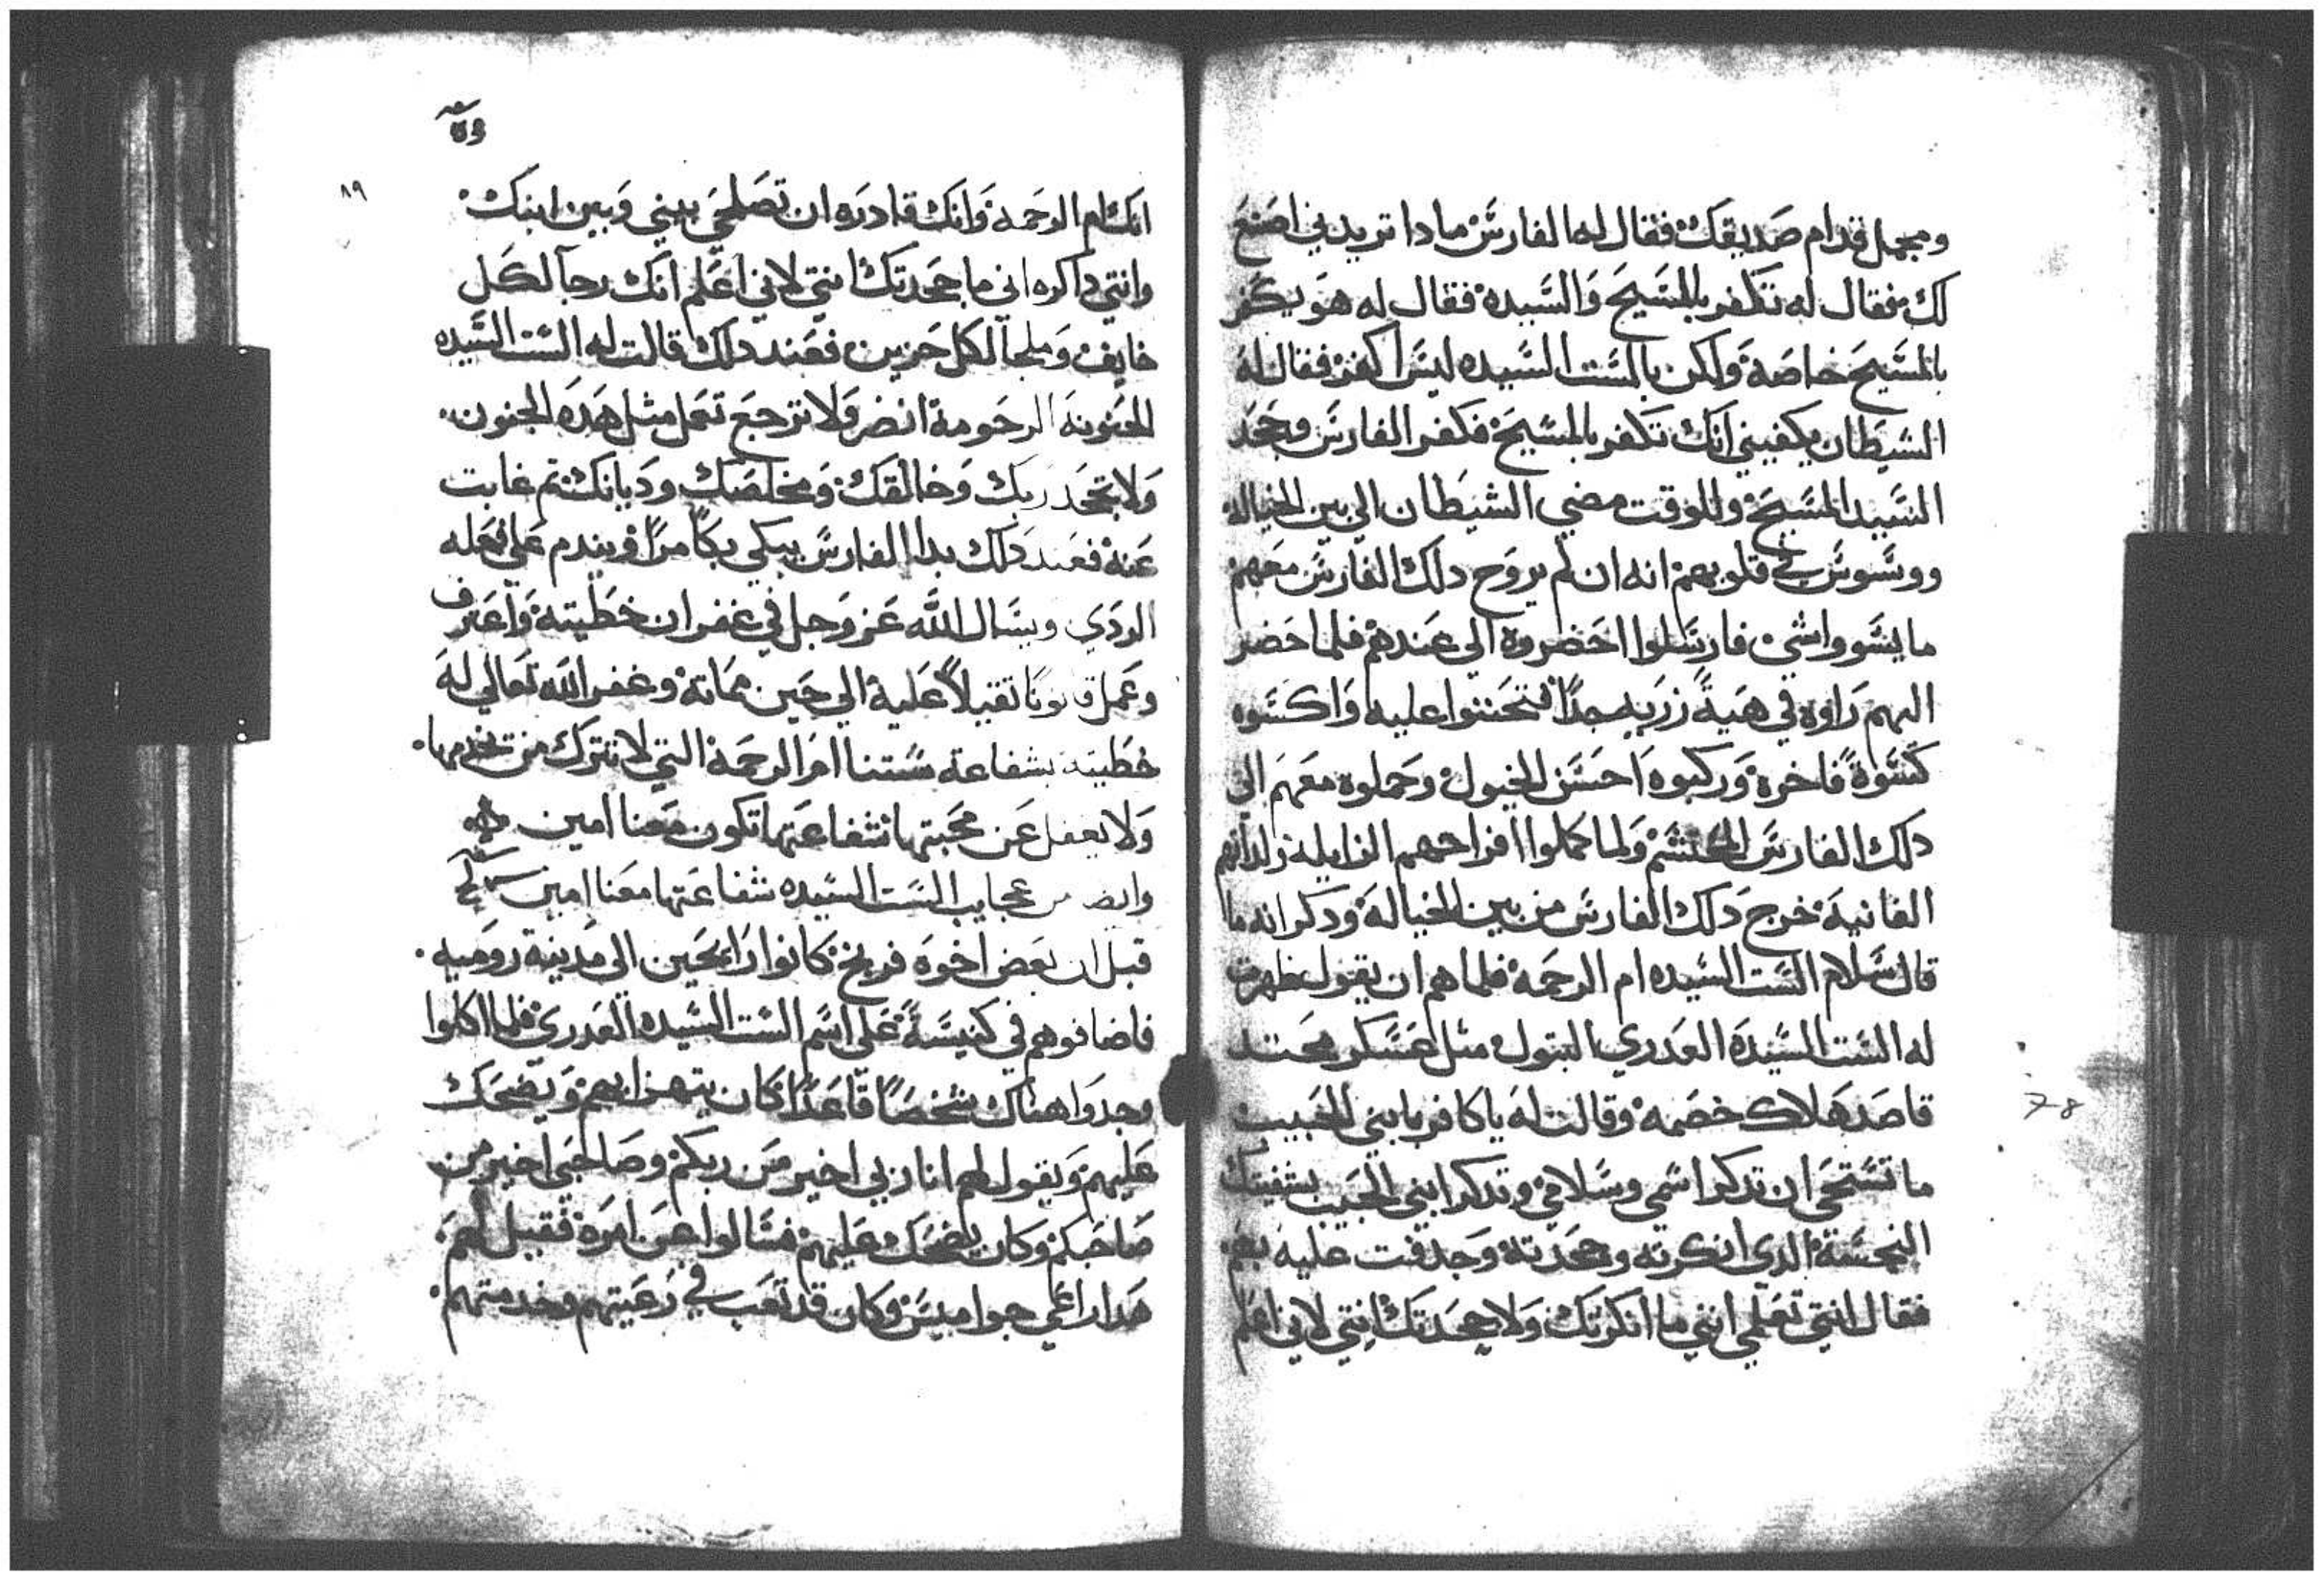 ومجمل قدام صديقك فقال له الفارس مادا تريدني اصنع
لك فقال له تكفر بالمسيح والسيده فقال له هو يكفر
بالمسيح خاصة ولكن بالست السيده ليس اكفر فقال له
الشيطان يكفيني انك تكفر بالمسيح فكفر الفارس وجحد
السيد المسيح وللوقت مضي الشيطان الي بين الخياله
ووسوس في قلوبهم انه ان لم يروح دلك الفارس معهم
ما يسووا شي فارسلوا احضروه الي عندهم فلما حضر
اليهم راوه في هية زريه جدا فتحننوا عليه واكسوه
كسوة فاخرة وركبوه احسن الخيول وحملوه معهم الي
دلك الفارس المحتشم ولما كملوا افراحهم الزايله ولداتهم
الفانية خرج دلك الفارس من بين الخيالة ودكر انه ما
قال سلام الست السيده ام الرحمة فلما هم ان يقول ظهرت
له الست السيدة العدري البتول مثل عسكر مجند
قاصد هلاك خصمه وقالت له يا كافر بابني الحبيب
ما تستحي ان تدكر اسمي وسلامي وتدكر ابني الحبيب بشفيتك
النجسة الدي انكرته وجحدته وجدفت عليه نعم
فقال انتي تعلمي انني ما انكرتك ولا جحدتك انتي لاني اعلم
٨٩
انك ام الرحمة وانك قادره ان تصلحي بيني وبين ابنك
وانتي داكره اني ما جحدتك انتي لاني اعلم انك رجا لكل
خايف وملجا لكل حزين فعند دلك قالت له الست السيده
الحنونة الرحومة انضر ولا ترجع تعمل مثل هده الجنون
ولا تجحد ربك وخالقك ومخلصك وديانك تم غابت
عنه فعند دلك بدا الفارس يبكي بكا مرا ويندم علي فعله
الردي ويسال الله عز وجل في غفران خطيته واعترف
وعمل قانونا تقيلا عليه الي حين مماته وغفر الله تعالي له
خطيته بشفاعة ستنا ام الرحمة التي لا تترك من يخدمها
ولا يغفل عن محبتها شفاعتها تكون معنا امين
وايضا من عجايب الست السيده شفاعتها معنا امين
قيل ان بعض اخوة فرنج كانوا رايحين الي مدينة رومية
فاضافوهم في كنيسة علي اسم الست السيده العدري فلما اكلوا
وجدوا هناك شخصا قاعدا كان يتهزا بهم ويضحك
عليهم ويقول لهم انا ربي اخير من ربكم وصاحبي اخير من
صاحبكم وكان يضحك عليهم فسالوا عن امره فقيل لهم
هدا راعي جواميس وكان قد تعب في رعيتهم وخدمتهم